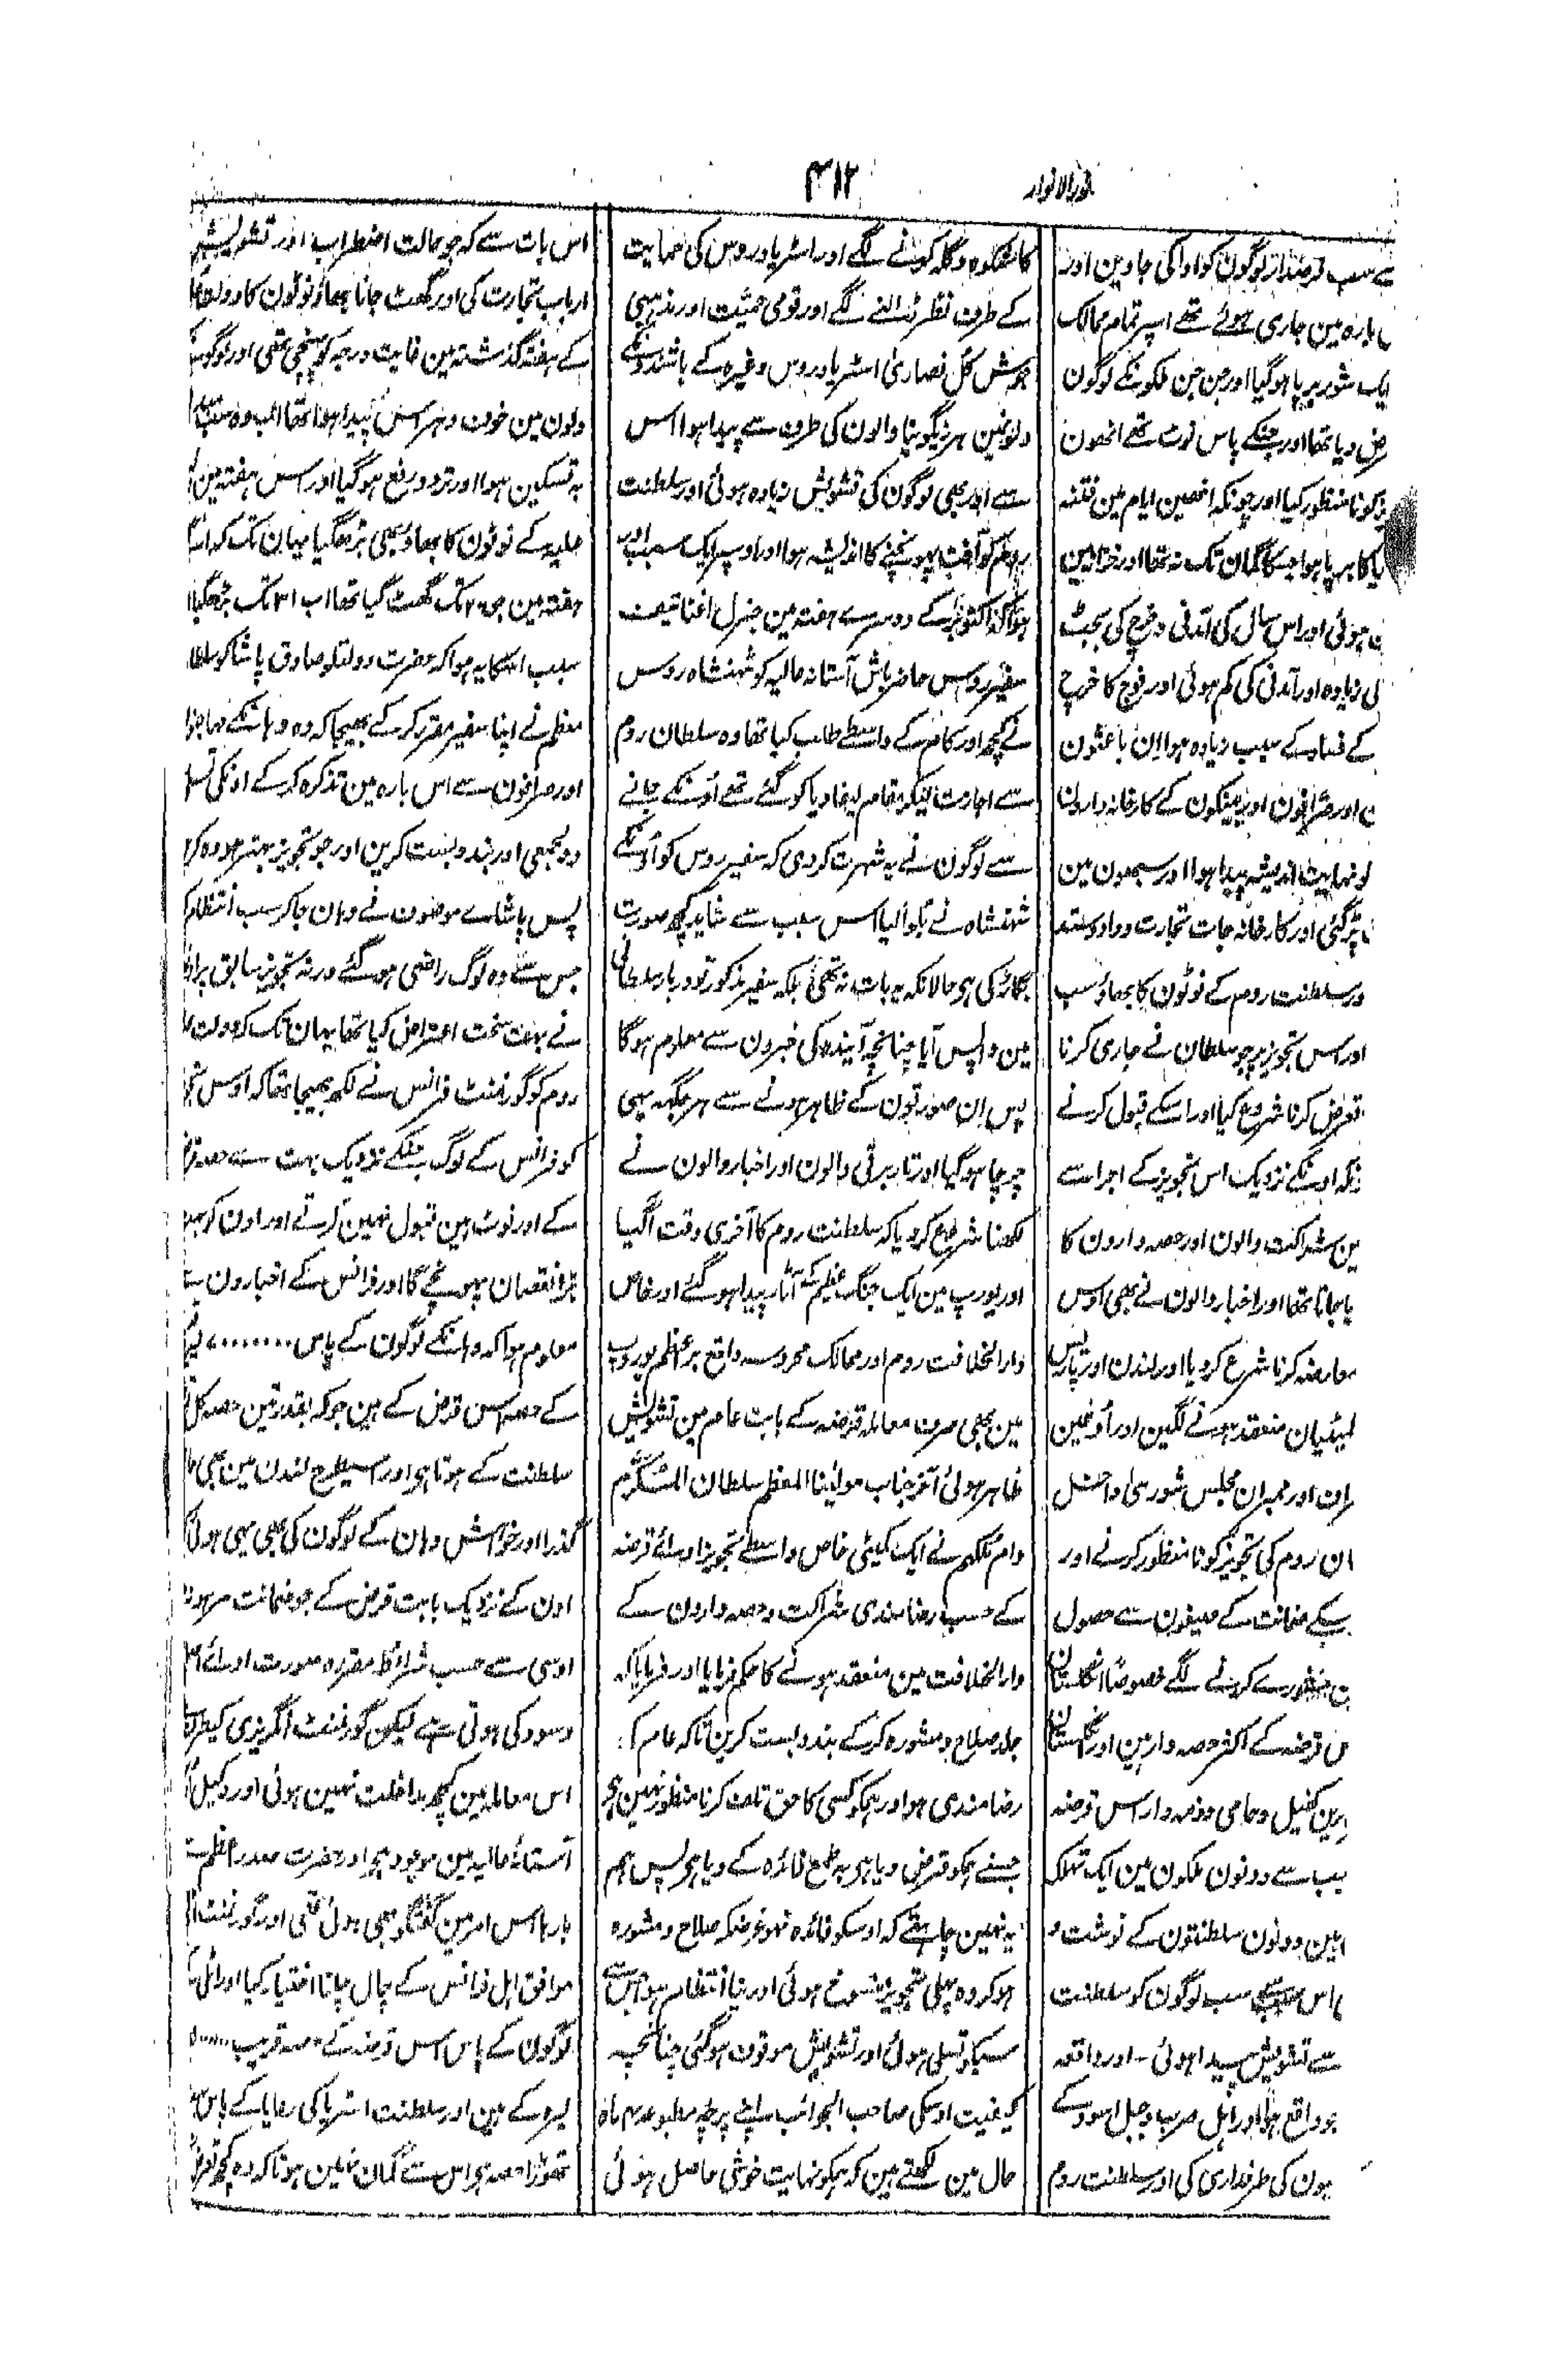 نور الانوار
۴۱۲
سے سب قرضدار لوگون کو ادا کی جاوین اور
بارہ مین جاری ہوئے تھے اسپر تمام ممالک
ایک شور برپا ہوگیا اور جن جن ملکونکے لوگون
دیا تھا اور جنکے پاس نوٹ تھے انھون
منظور کیا اور چونکہ انھین ایام مین فتنہ
برپا ہوا جسکا گمان تک نہ تھا اور خزانہ مین
ہوئی اور اس سال کی آمدنی و خرچ کی بجٹ
زیادہ اور آمدنی کی کم ہوئی اور فوج کا خرچ
کے فساد کے سبب زیادہ ہوا ان باعثون
اور صرافون اور بینکون کے کارخانہ دارون
نہایت اندیشہ پیدا ہوا اور سبھون مین
پڑگئی اور کارخانہ جات تجارت و داد و ستد
سلطنت روم کے نوٹون کا بھاؤ سب
اور اس تجویز پر جو سلطان نے جاری کرنا
تعرض کرنا شروع کیا اور اسکے قبول کرنے
اونکے نزدیک اس تجویز کے اجرا سے
مین شراکت والون اور حصہ دارون کا
جاتا تھا اور اخبار والون نے بھی اوس
معارضہ کرنا شروع کردیا اور لندن اور پارس
کمیٹیان منعقد ہونے لگین اور اونمین
اور ممبران مجلس شوری داخل
روم کی تجویز کو نامنظور کرنے اور
ضمانت کے صیغون سے حصول
مشورے کرنے لگے خصوصًا انگلستان
قرضہ کے اکثر حصہ دار ہین اور انگلستان
کفیل و حامی و ذمہ دار اس قرضہ
سبب سے دونون ملکون مین ایک تہلکہ
دونون سلطنتون کے نوشت و
اس سبب سب لوگون کو سلطنت
سے تشویش پیدا ہوئی۔ اور واقعہ
جو واقع ہوا اور اہل صرب و جبل اسود کے
کی طرفداری کی اور سلطنت روم
کا شکوہ و گلہ کرنے لگے اور اسٹریا و روس کی حمایت
کے طرف نظر ڈالنے لگے اور قومی حمیت اور مذہبی
جوش کل نصاریٰ اسٹریا و روس وغیرہ کے باشندونکے
دلونمین ہرزیگوینا والون کی طرف سے پیدا ہوا اس
سے اور بھی لوگون کی تشویش زیادہ ہوئی اور سلطنت
روم کو آفت پہونچنے کا اندیشہ ہوا اور اوسپر ایک سبب اور
ہوا کہ اکتوبر کے دوسرے ہفتہ مین جنرل اغناتیف
سفیر روس حاضر باش آستانہ عالیہ کو شہنشاہ روس
نے کچھ اور کام کے واسطے طلب کیا تھا وہ سلطان روم
سے اجازت لیکر بمقام لیفادیا کو گئے تھے اونکے جانے
سے لوگون نے یہ شہرت کردی کہ سفیر روس کو اونکے
شہنشاہ نے بلوالیا اس سبب سے شاید کچھ صورت
بگاڑ کی ہے حالانکہ یہ بات نہ تھی بلکہ سفیر مذکور تو دربار سلطانی
مین واپس آیا چنانچہ آیندہ کی خبرون سے معلوم ہوگا
پس ان صورتون کے ظاہر ہونے سے ہر جگہ یہی
چرچا ہوگیا اور تار برقی والون اور اخبار والون نے
لکھنا شروع کردیا کہ سلطنت روم کا آخری وقت آگیا
اور یورپ مین ایک جنگ عظیم کے آثار پیدا ہوگئے اور خاص
دارالخلافت روم اور ممالک محروسہ واقع بر اعظم یوروپ
مین بھی صرف معاملہ قرضہ کے بابت عام مین تشویش
ظاہر ہوئی آخر جناب مولینا المعظم سلطان
دام ملکہم نے ایک کمیٹی خاص واسطے تجویز ادائے قرضہ
کے حسب رضامندی شراکت و حصہ دارون کے
دارالخلافت مین منعقد ہونے کا حکم فرمایا اور فرمایا کہ
جلد صلاح و مشورہ کرکے بندوبست کرین تاکہ عام کی
رضامندی ہو اور ہمکو کسی کا حق تلف کرنا منظور نہین ہے
جسنے ہمکو قرض دیا ہے بہ طمع فائدہ کے دیا ہے پس ہم
یہ نہین چاہتے کہ اوسکو فائدہ نہو غرضکہ صلاح و مشورہ
ہوکر وہ پہلی تجویز منسوخ ہوئی اور نیا انتظام ہوا جس سے
سبکو تسلی ہوئی اور تشویش موقوف ہوگئی چنانچہ
کیفیت اوسکی صاحب الجوائب اپنے پرچہ مطبوعہ ۳ ماہ
حال مین لکھتے ہین کہ ہمکو نہایت خوشی حاصل ہوئی
اس بات سے کہ جو حالت اضطراب اور تشویش
ارباب تجارت کی اور گھٹ جانا بھاؤ نوٹون کا دولت
کے ہفتہ گذشتہ مین غایت درجہ کو پہنچی تھی اور لوگون
دلون مین خوف و ہراس پیدا ہوا تھا اب وہ سب
بہ تسکین ہوا اور تردد رفع ہوگیا اور اس ہفتہ مین
علیہ کے نوٹون کا بھاؤ بھی بڑھگیا یہان تک کہ
ہفتہ مین جو ۲۰ تک گھٹ گیا تھا اب ۳۱ تک بڑھگیا
سبب اسکا یہ ہوا کہ حضرت دولتلو صادق پاشا کو سلطان
معظم نے اپنا سفیر مقرر کرکے بھیجا کہ وہ وہانکے مہاجنون
اور صرافون سے اس بارہ مین تذکرہ کرکے اونکی تسلی
دلجمعی اور بندوبست کرین اور جو تجویز بہتر ہو وہ کرین
پس پاشاے موصوف نے وہان جاکر سب انتظام
جس سے وہ لوگ راضی ہوگئے ورنہ تجویز سابق پر
نے بہت سخت اعتراض کیا تھا یہان تک کہ دولت
روم کو گورنمنٹ فرانس نے لکھ بھیجا تھا کہ اوس
کو فرانس کے لوگ جنکے نزدیک بہت سے حصہ
کے اور نوٹ ہین قبول نہین کرتے اور اون کو
بڑا نقصان پہونچےگا اور فرانس کے اخبارون سے
معلوم ہوا کہ وہانکے لوگون کے پاس
کے حصہ اس قرض کے ہین جو کہ بقدر تین حصہ کل
سلطنت کے ہوتا ہے اور اسیطرح لندن مین بھی
گذرا اور خواہش وہان کے لوگون کی بھی یہی ہوئی
اون کے نزدیک بابت قرض کے جو ضمانت مرہونہ
اوسی سے حسب شرائط مقررہ صورت ادائے
و سود کی ہوتی ہے لیکن گورنمنٹ انگریزی کیطرف
اس معاملہ مین کچھ مداخلت نہین ہوئی اور وکیل
آستانہ عالیہ مین موجود ہے اور حضرت صدر اعظم سے
بارہا اس امر مین گفتگو بھی ہوئی تھی اور گورنمنٹ
موافق اہل فرانس کے چال چلنا اختیار کیا اور اٹلی
لوگون کے پاس اس قرضہ کے حصہ قریب
لیرہ کے ہین اور سلطنت اسٹریا کی رعایا کے پاس
تھوڑا حصہ ہے اس سے گمان نہین ہوتا کہ وہ کچھ